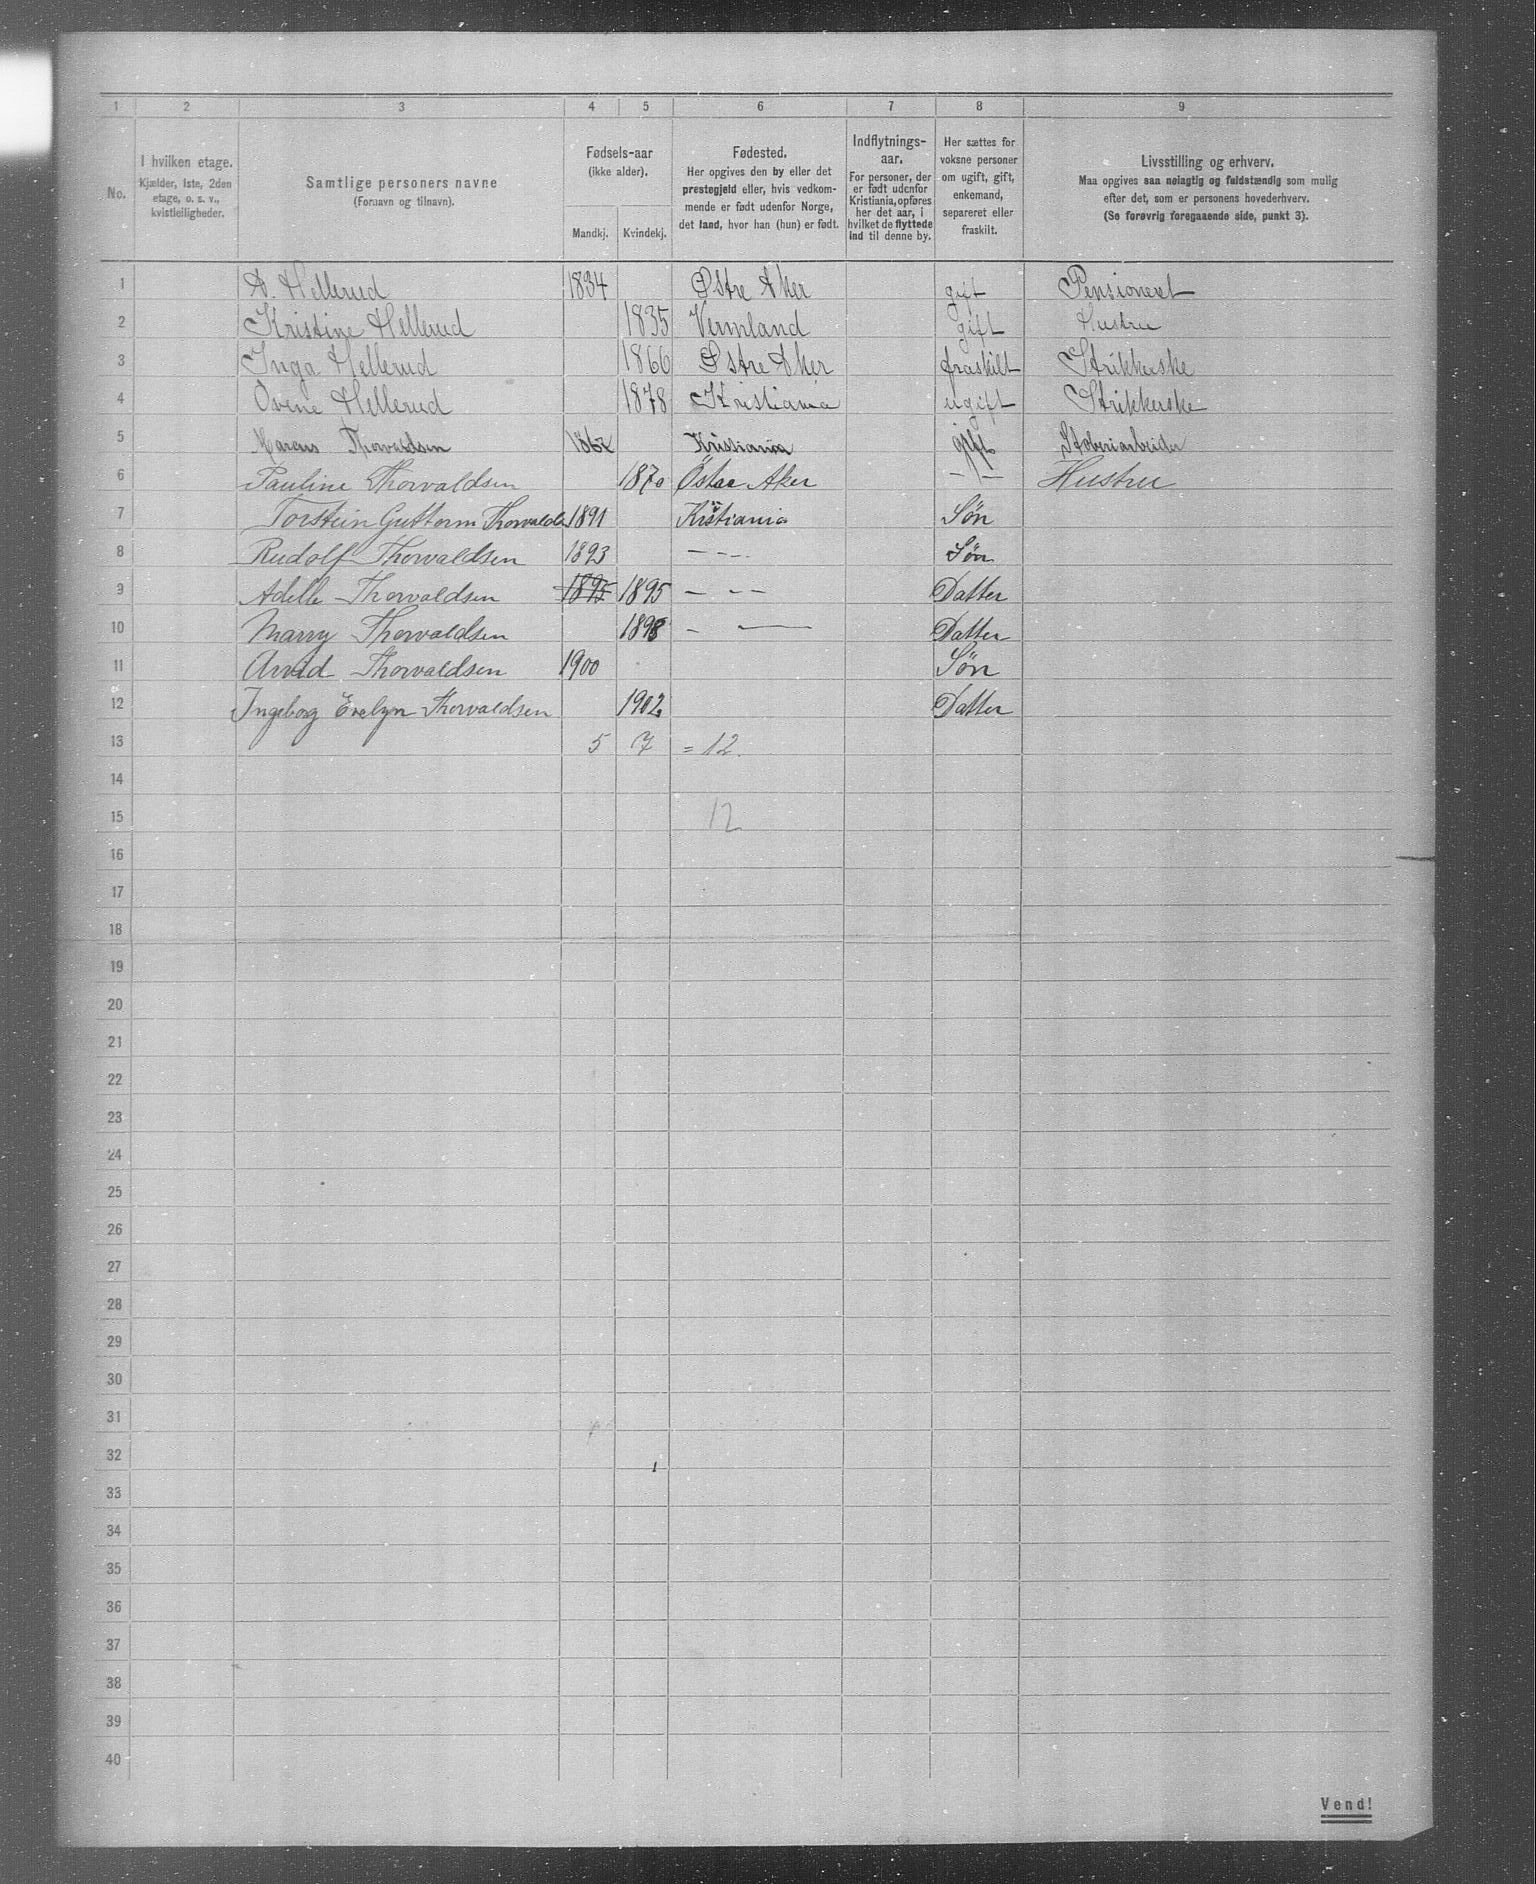 1 2 3 4 5 6 7 8 9
No.
I hvilken etage.
Kjælder, 1ste, 2den
etage, o. s. v.,
kvistleiligheder.
Samtlige personers navne
(Fornavn og tilnavn).
Fødsels-aar
(ikke alder).
Mandkj. Kvindekj.
Fødested.
Her opgives den by eller det
prestegjeld eller, hvis vedkom-
mende er født udenfor Norge,
det land, hvor han (hun) er født.
Indflytnings-
aar.
For personer, der
er født udenfor
Kristiania, opføres
her det aar, i
hvilket de flyttede
ind til denne by.
Her sættes for
voksne personer
om ugift, gift,
enkemand,
separeret eller
fraskilt.
Livsstilling og erhverv.
Maa opgives saa nøiagtig og fuldstændig som mulig
efter det, som er personens hovederhverv.
(Se forøvrig foregaaende side, punkt 3).
1 A. Hellerud 1834 Østre Aker gift Pensioneret
2 Kristine Hellerud 1835 Vermland gift Hustru
3 Inga Hellerud 1866 Østre Aker fraskilt Strikkerske
4 Ovine Hellerud 1878 Kristiania ugift Strikkerske
5 Marcus Thorvaldsen Kristiania gift Stoberiarbeider
6 Pauline Thorvaldsen 1870 Östre Aker — — Hustru
7 Torstein Guttorm Thorvaldsen 1891 Kristiania Søn
8 Rudolf Thorvaldsen 1893 — - - - Søn
9 Adelle Thorvaldsen 1895 1895 — - — Datter
10 Marry Thorvaldsen 1898 - — Datter
11 Arvid Thorvaldsen 1900 Søn
12 Ingeborg Evelyn Thorvaldsen 1902 Datter
13 5 7 = 12.
14
15 12
16
17
18
19
20
21
22
23
24
25
26
27
28
29
30
31
32
33
34
35
36
37
38
39
40
Vend!